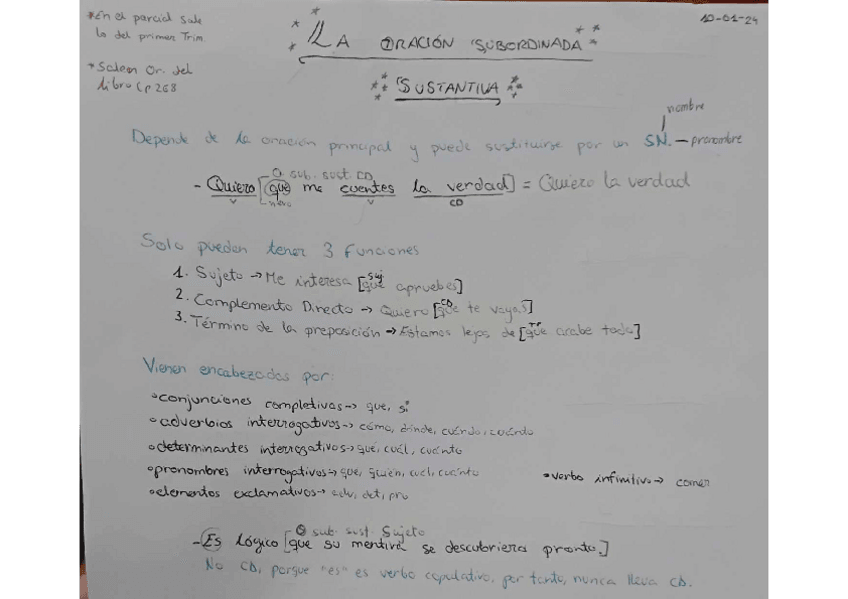 *En el parcial sale
lo del primer Trim.
*Salen Or. del
libro Cp 268
10-01-24
LA ORACIÓN SUBORDINADA
SUSTANTIVA
nombre
Depende de la oración principal y puede sustituirse por un SN. — pronombre
O sub. sust. CD
- Quiero [que me cuentes la verdad] = Quiero la verdad
V nexo V CD
Solo pueden tener 3 funciones
1. Sujeto → Me interesa [que apruebes]
Suj
2. Complemento Directo → Quiero [que te vayas]
CD
3. Término de la preposición → Estamos lejos de [que acabe todo]
Tº
Vienen encabezadas por:
•conjunciones completivas → que, si
•adverbios interrogativos → cómo, dónde, cuándo, cuánto
•determinantes interrogativos → qué, cuál, cuánto
•pronombres interrogativos → que, quién, cuál, cuánto
•verbo infinitivo → comer
•elementos exclamativos → adv, det, pro
O sub. sust. Sujeto
- Es lógico [que su mentira se descubriera pronto.]
No CD, porque "es" es verbo copulativo, por tanto, nunca lleva CD.